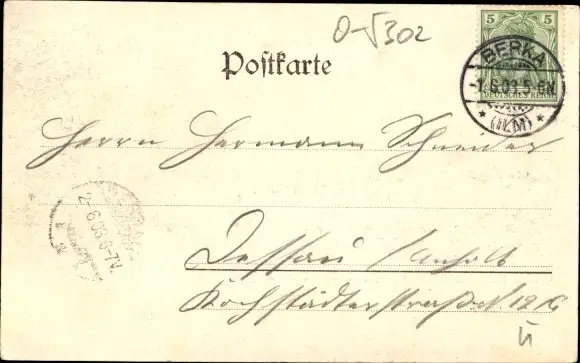 O-5302
Postkarte
5 5
DEUTSCHES REICH
BERKA
-1.6.03.5-6N.
* (ILM) *
Herrn Hermann Schneider
2-6 03 9-7V.
Dessau / Anhalt
Kochstädterstraße No 12